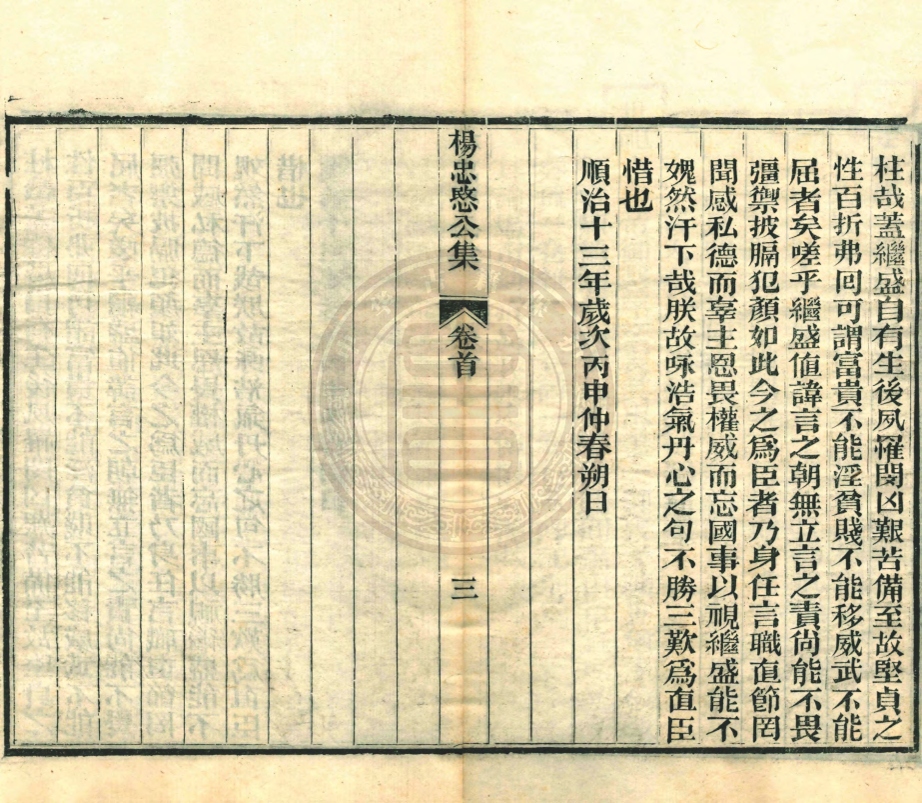 柱哉蓋繼盛自有生後夙罹閔凶艱苦備至故堅貞之
性百折弗囘可謂富貴不能淫貧賤不能移威武不能
屈者矣嗟乎繼盛值諱言之朝無立言之責尚能不畏
彊禦披膈犯顏如此今之爲臣者乃身任言職直節罔
聞感私德而辜主恩畏權威而忘國事以視繼盛能不
媿然汗下哉朕故咏浩氣丹心之句不勝三歎爲直臣
惜也
順治十三年歲次丙申仲春朔日
楊忠愍公集
卷首
三